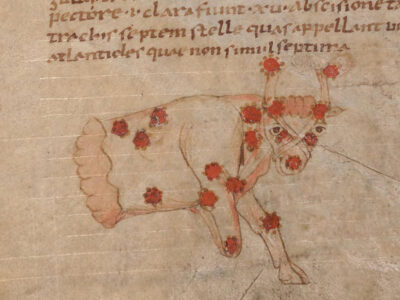 pectore · v · clara fiunt · xv · abscisione ta
trachis septem stelle quas appellant
atlantides quae non simul septima